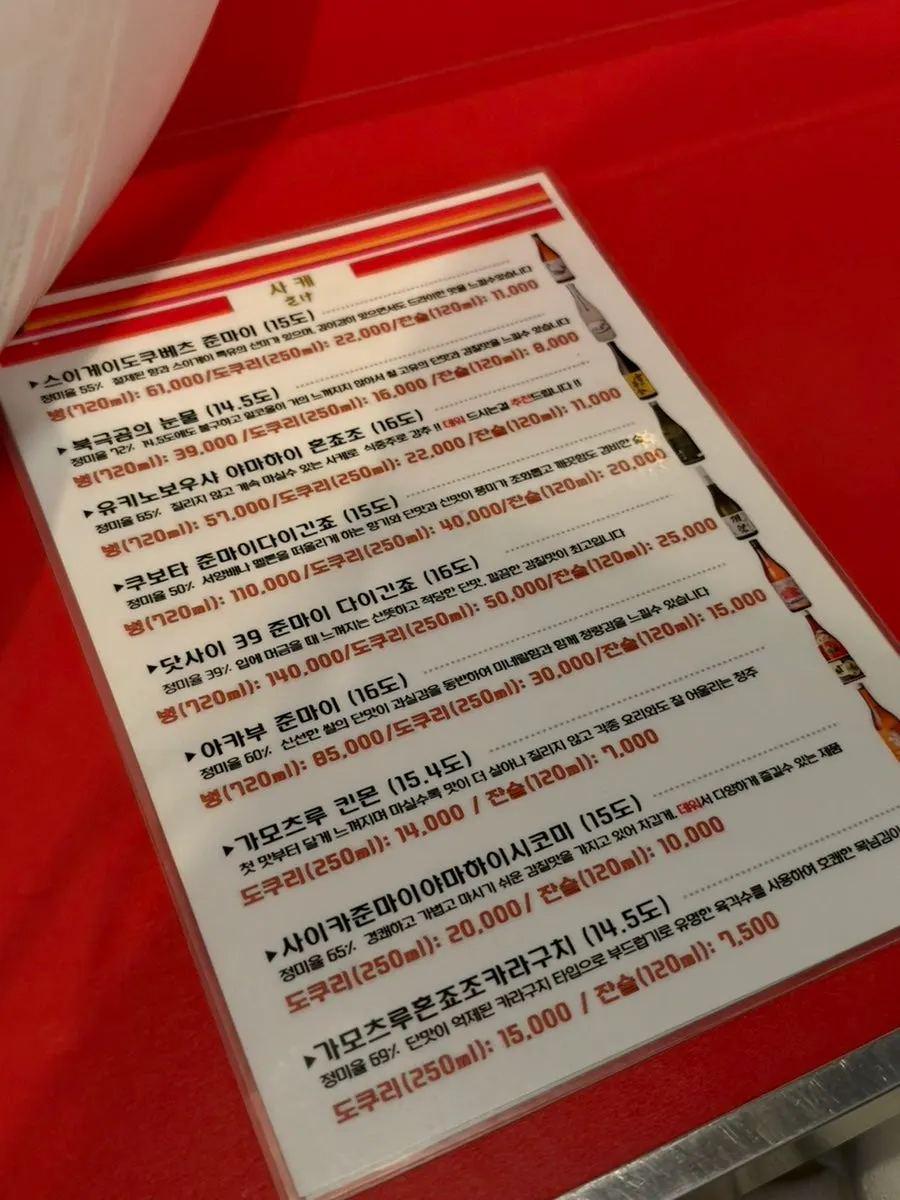 사케
▶스이게이도쿠베츠 준마이 (15도)
정미율 55% 절제된 향과 스이게이 특유의 산미가 있으며, 감이감이 있으면서도 드라이한 맛을 느낄수있습니다
병(720ml): 61,000/도쿠리(250ml): 22,000/잔술(120ml): 11,000
▶북극곰의 눈물 (14.5도)
정미율 72% 14.5도에도 불구하고 알코올이 거의 느껴지지 않아서 쌀 고유의 단맛과 감칠맛을 느낄수 있습니다
병(720ml): 39,000 /도쿠리(250ml): 16,000 /잔술(120ml): 8,000
▶유키노보우사 야마하이 혼죠조 (16도)
정미율 65% 질리지 않고 계속 마실수 있는 사케로 식중주로 강추 !! 데워 드시는걸 추천드립니다 !!
병(720ml): 57,000/도쿠리(250ml): 22,000/잔술(120ml): 11,000
▶쿠보타 준마이다이긴죠 (15도)
정미율 50% 서양배나 멜론을 떠올리게 하는 향기와 단맛과 신맛이 풍미가 조화롭고 깨끗함도 겸비한 술
병(720ml): 110,000/도쿠리(250ml): 40,000/잔술(120ml): 20,000
▶닷사이 39 준마이 다이긴죠 (16도)
정미율 39% 입에 머금을 때 느껴지는 산뜻하고 적당한 단맛, 깔끔한 감칠맛이 최고입니다
병(720ml): 140,000/도쿠리(250ml): 50,000/잔술(120ml): 25,000
▶아카부 준마이 (16도)
정미율 60% 신선한 쌀의 단맛이 과실감을 동반하여 미네랄함과 함께 청량감을 느낄수 있습니다
병(720ml): 85,000/도쿠리(250ml): 30,000/잔술(120ml): 15,000
▶가모츠루 킨몬 (15.4도)
첫 맛부터 달게 느껴지며 마실수록 맛이 더 살아나 질리지 않고 각종 요리와도 잘 어울리는 청주
도쿠리(250ml): 14,000 / 잔술(120ml): 7,000
▶사이카준마이야마하이시코미 (15도)
정미율 65% 경쾌하고 가볍고 마시기 쉬운 감칠맛을 가지고 있어 차갑게, 데워서 다양하게 즐길수 있는 제품
도쿠리(250ml): 20,000/ 잔술(120ml): 10,000
▶가모츠루혼죠조카라구치 (14.5도)
정미율 69% 단맛이 억제된 카라구치 타입으로 부드럽기로 유명한 육각수를 사용하여 호쾌한 목넘김이
도쿠리(250ml): 15,000 / 잔술(120ml): 7,500